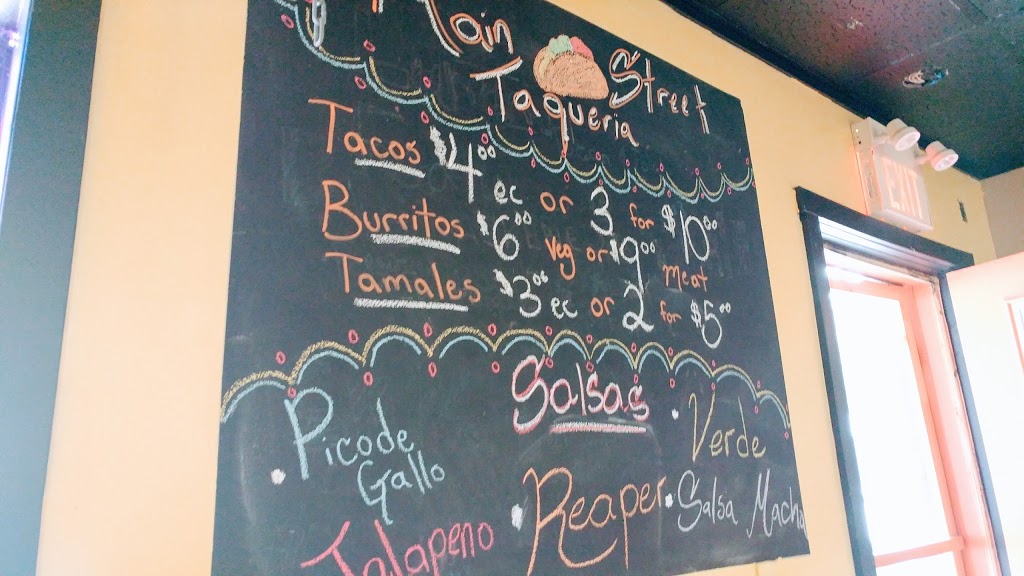 Main Street
Taqueria
Tacos $4.00 ec or 3 for $10.00
Burritos $6.00 veg or $9.00 meat
Tamales $3.00 ec or 2 for $5.00
Salsas
Pico de Gallo
Verde
Jalapeno
Reaper
Salsa Macha
EXIT